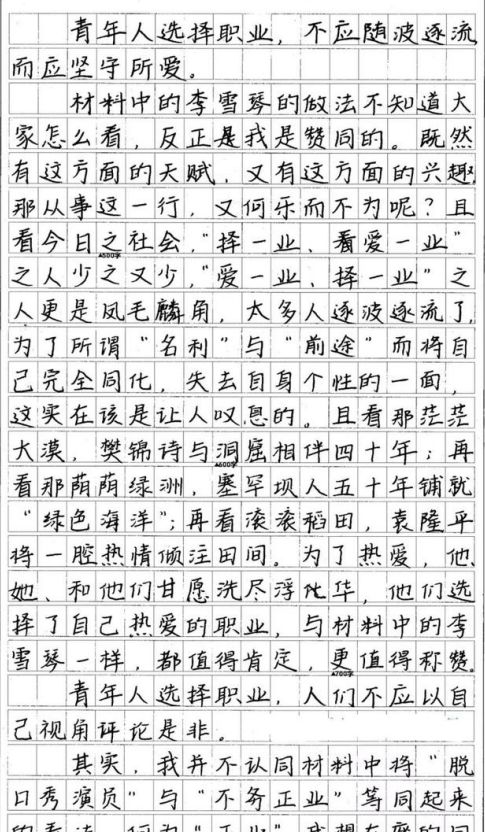 青年人选择职业，不应随波逐流
而应坚守所爱。
材料中的李雪琴的做法不知道大
家怎么看，反正是我是赞同的。既然
有这方面的天赋，又有这方面的兴趣，
那从事这一行，又何乐而不为呢？且
看今日之社会，“择一业、看爱一业”
▲500字
之人少之又少，“爱一业、择一业”之
人更是凤毛麟角，太多人逐波逐流了，
为了所谓“名利”与“前途”而将自
己完全同化，失去自身个性的一面，
这实在该是让人叹息的。且看那茫茫
大漠，樊锦诗与洞窟相伴四十年；再
▲600字
看那荫荫绿洲，塞罕坝人五十年铺就
“绿色海洋”；再看滚滚稻田，袁隆平
将一腔热情倾注田间。为了热爱，他、
她、和他们甘愿洗尽浮华，他们选
择了自己热爱的职业，与材料中的李
雪琴一样，都值得肯定，更值得称赞。
▲700字
青年人选择职业，人们不应以自
己视角评论是非。
其实，我并不认同材料中将“脱
口秀演员”与“不务正业”等同起来